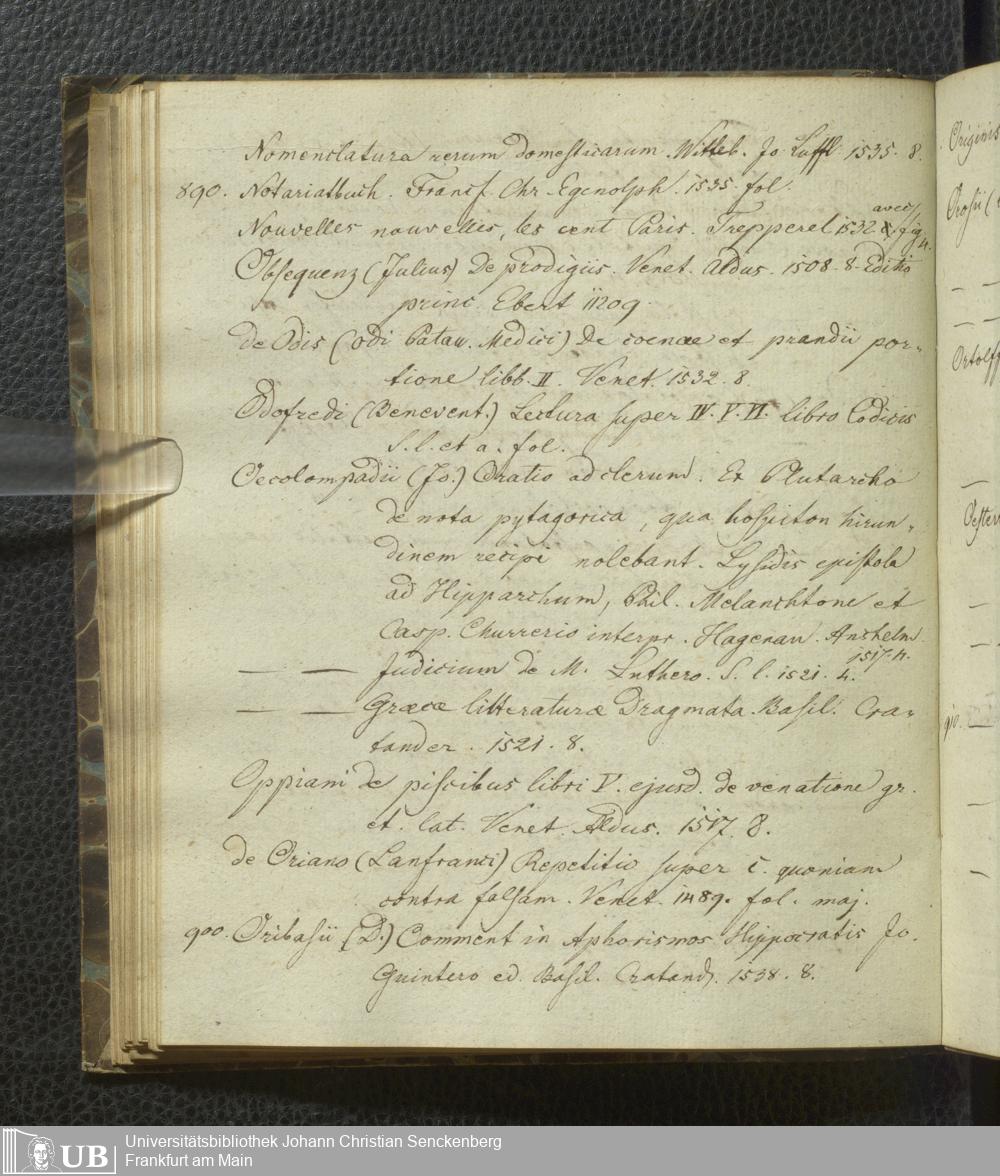 Nomenclatura rerum domesticarum. Witteb. Jo Lufft 1535. 8.
890. Notariatbuch. Francf. Chr. Egenolph. 1535. fol.
Nouvelles nouvelles, les cent Paris. Trepperel 1532 avec fig. 4.
Obsequenz (Julius) De prodigiis. Venet. Aldus. 1508. 8. Editio
princ. Ebert 11209.
de Odis (Odi Patav. Medici) De coenae et prandii por-
tione libb. II. Venet. 1532. 8.
Odofredi (Benevent.) Lectura super IV. V. VI. libro Codicis
S. l. et a. fol.
Oecolompadii (Jo.) Oratio ad clerum. Ex Plutarcho
de nota pytagorica, qua hospiton hirun-
dinem recipi nolebant. Lysidis epistola
ad Hipparchum, Phil. Melanchtone et
Casp. Churrerio interpr. Hagenau. Anshelm.
1517. 4.
— — Judicium de M. Luthero. S. l. 1521. 4.
— — Graecae litteraturae Dragmata. Basil. Cra-
tander. 1521. 8.
Oppiani de piscibus libri V. ejusd. de venatione gr.
et. lat. Venet. Aldus. 1517. 8.
de Oriano (Lanfranci) Repetitio super c. quoniam
contra falsam. Venet. 1489. fol. maj.
900. Oribasii (D.) Comment in Aphorismos Hippocratis Jo.
Guintero ed. Basil. Cratand. 1538. 8.
Originis
Orosii (
Ortolff
Oester
910. —
UB
Universitätsbibliothek Johann Christian Senckenberg
Frankfurt am Main